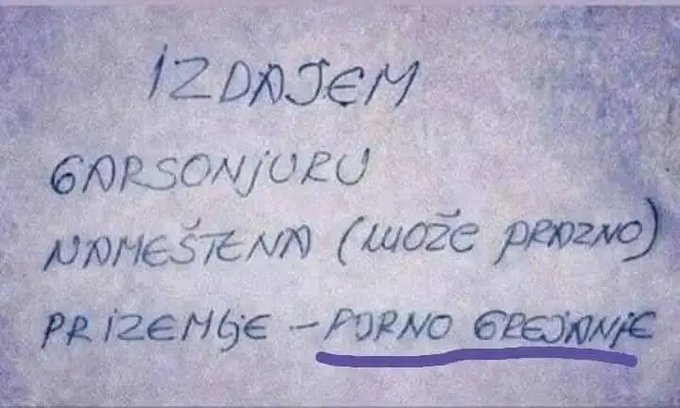 IZDAJEM
GARSONjURU
NAMEŠTENA (MOŽE PRAZNO)
PRIZEMljE – PORNO GREJANjE